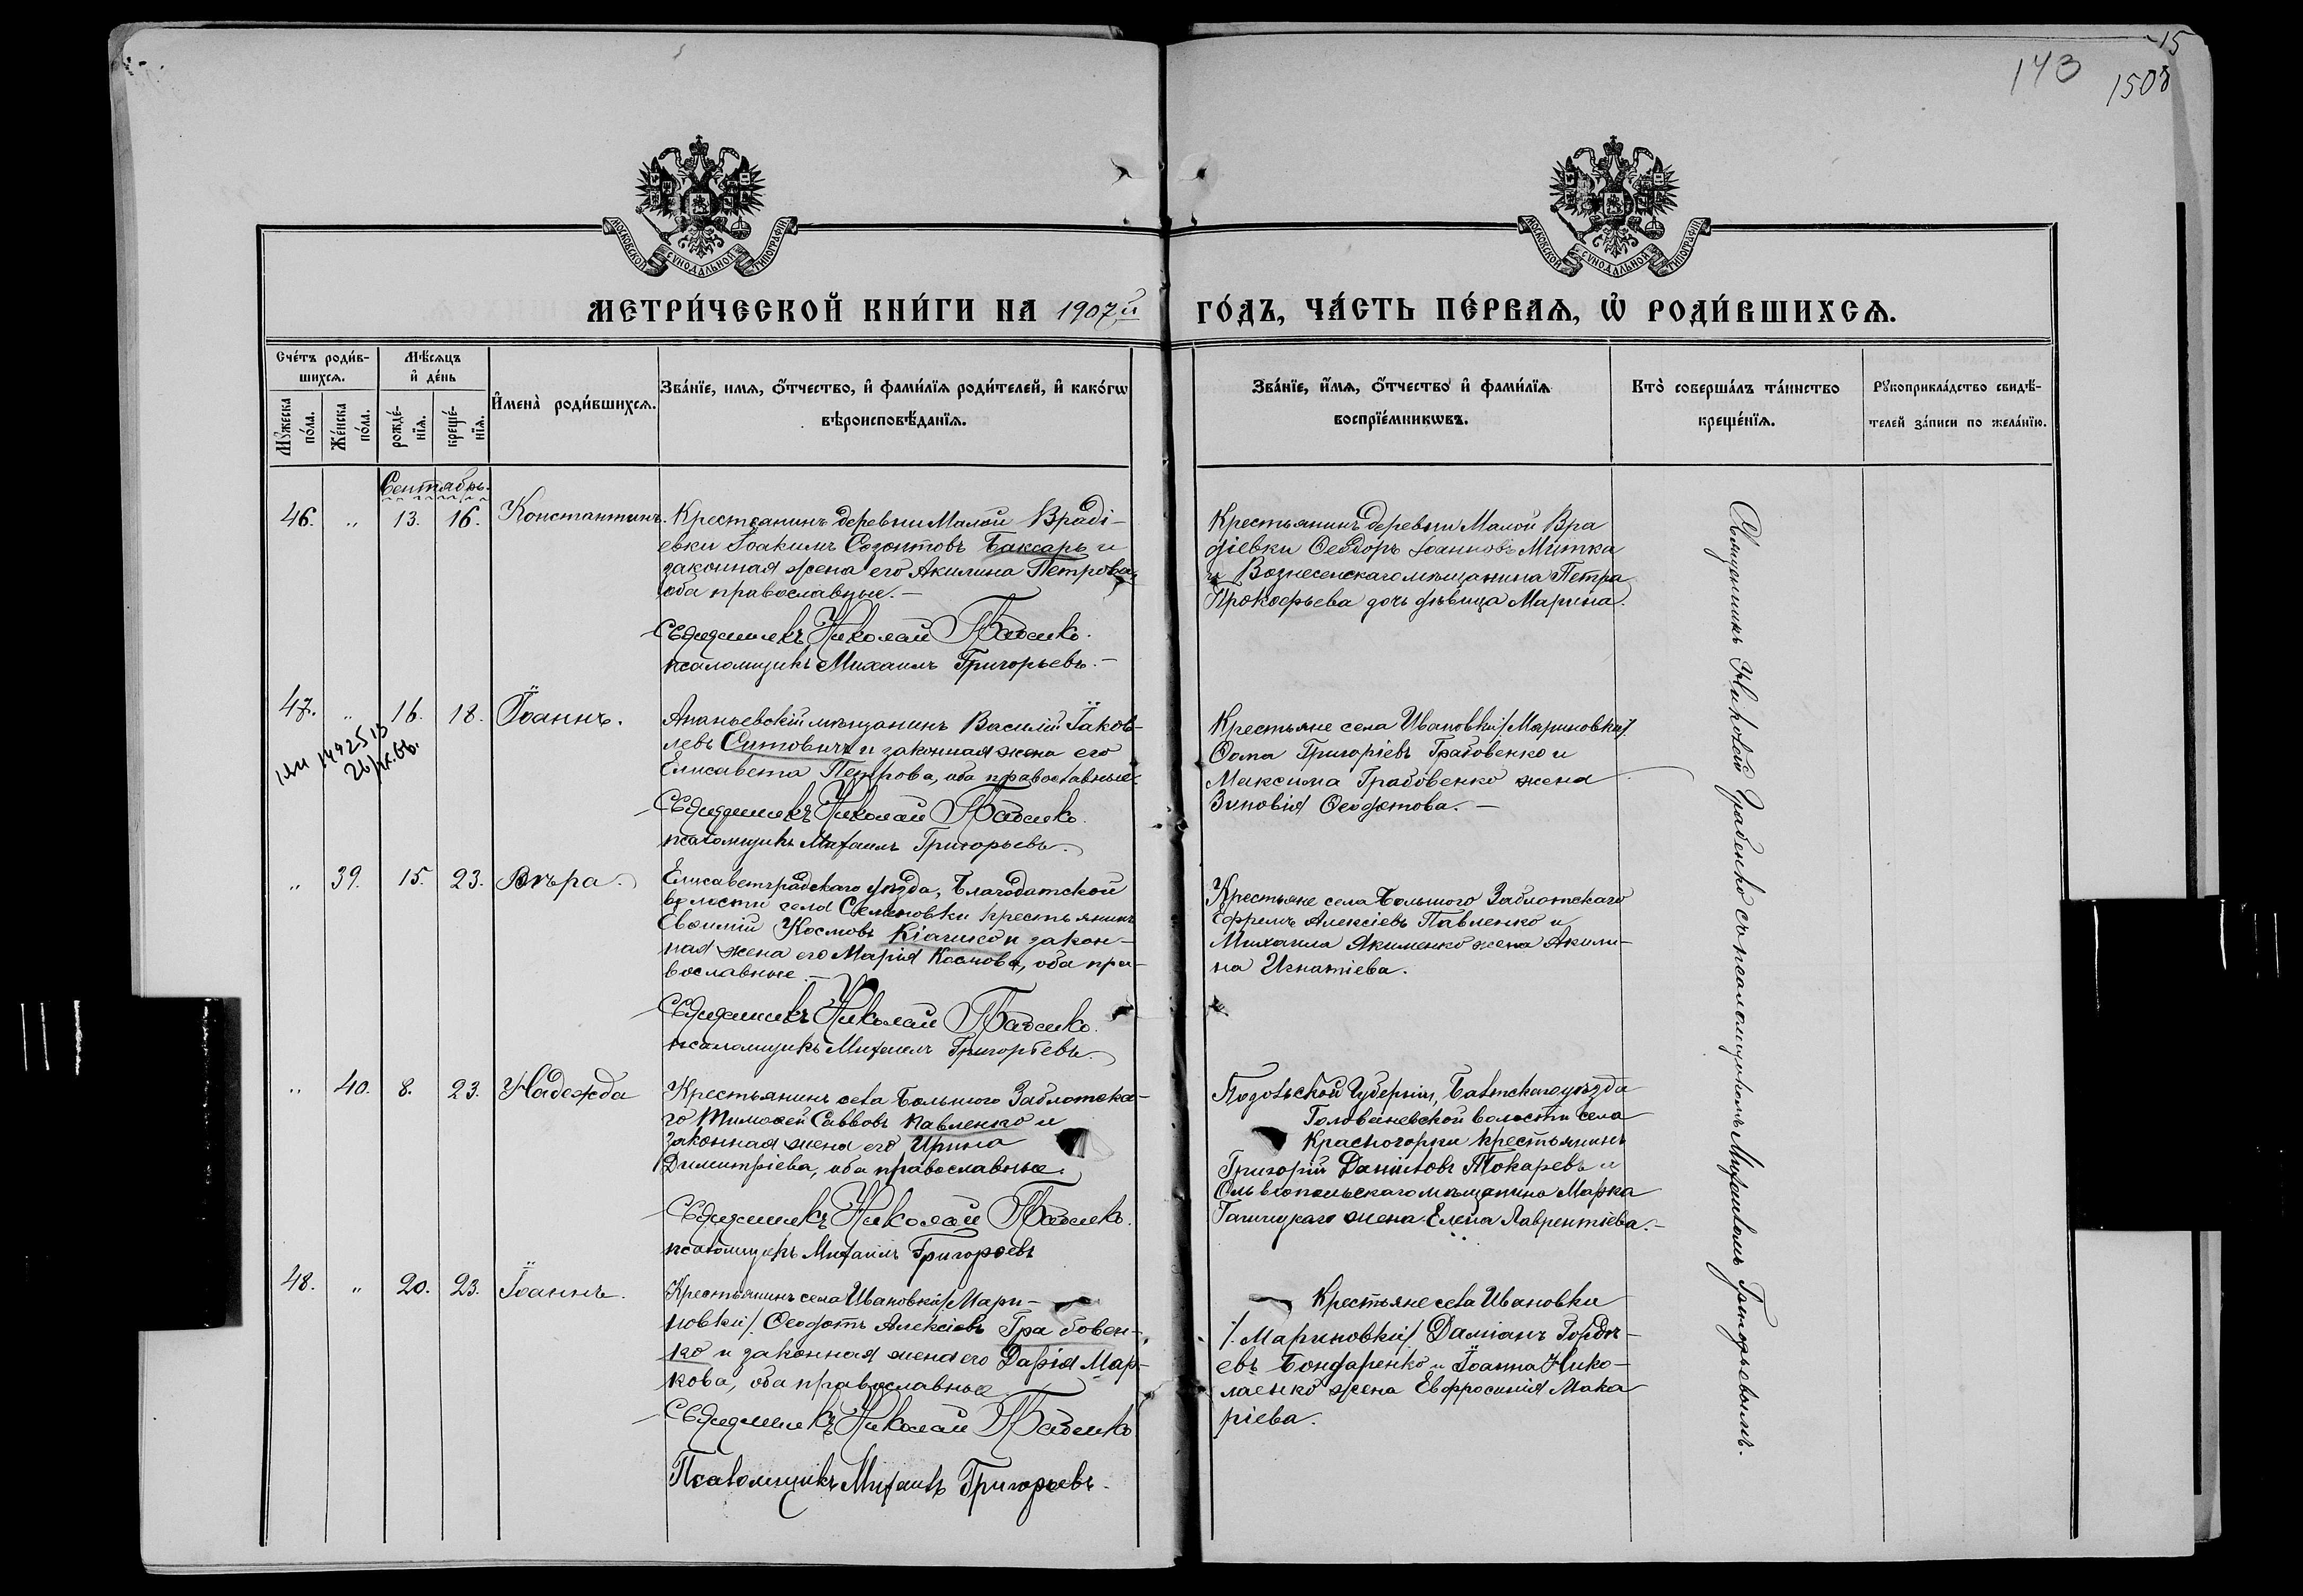 15
143 1508
МОСКОВСКОЙ СѴНОДАЛЬНОЙ ТИПОГРАФІИ
МОСКОВСКОЙ СѴНОДАЛЬНОЙ ТИПОГРАФІИ
МЕТРИ́ЧЕСКОЙ КНИ́ГИ НА 1907й
ГО́ДЪ, ЧА́СТЬ ПЕ́РВАѦ, Ѡ҆ РОДИ́ВШИХСѦ.
Сче́тъ роди́в-
шихсѧ.
Мѣ́сѧцъ
и҆ де́нь
Мꙋ́жеска
по́ла.
Же́нска
по́ла.
рожде́-
нїѧ.
креще́-
нїѧ.
И҆мена̀ роди́вшихсѧ.
Зва́нїе, имѧ, ѻ҆́тчество, и҆ фами́лїѧ роди́телей, и҆ како́гѡ
вѣроисповѣ́данїѧ.
Зва́нїе, и҆́мѧ, ѻ҆́тчество и҆ фами́лїѧ
воспрїе́мникѡвъ.
Кто̀ соверша́лъ та́инство
креще́нїѧ.
Рꙋкоприкла́дство свидѣ́-
телей за́писи по жела́нїю.
Сентябрь.
46. " 13. 16. Константинъ.
Крестьянинъ деревни Малой Враді-
евки Іоакимъ Созонтовъ Баксаръ и
законная жена его Акилина Петрова,
оба православные.
Священникъ Николай
псаломщикъ Михаилъ Григорьевъ.
Крестьянинъ деревни Малой Вра
діевки Ѳеодоръ Іоанновъ Митка
и Вознесенскаго мѣщанина Петра
Прокофьева дочь дѣвица Марина.
47. " 16. 18. Іоаннъ.
Ананьевскій мѣщанинъ Василій Іаков-
левъ Ситовичъ и законная жена его
Елисавета Петрова, оба православные.
Священникъ Николай
псаломщикъ Михаилъ Григорьевъ.
Крестьяне села Ивановки /Мариновки/
Ѳома Григоріевъ Грабовенко и
Максима Грабовенко жена
Зиновія Ѳеодотова.
" 39. 15. 23. Вѣра.
Елисаветградскаго уѣзда, Благодатской
волости села Семеновки крестьянинъ
Евѳимій Космовъ и закон-
ная жена его Марія Космова, оба пра-
вославные
Священникъ Николай
псаломщикъ Михаилъ Григорьевъ.
Крестьяне села Большого Заблотскаго
Ефремъ Алексіевъ Павленко и
Михаила Якименко жена Акили-
на Игнатіева.
" 40. 8. 23. Надежда
Крестьянинъ села Большого Заблотска-
го Тимоѳей Савовъ Павленко и
законная жена его Ирина
Димитріева, оба православные.
Священникъ Николай
псаломщикъ Михаилъ Григорьевъ
Подольской Губерніи, Балтскаго уѣзда
Голованевской волости села
Красногорки крестьянинъ
Григорій Даниловъ Токаревъ и
Ольвіопольскаго мѣщанина Марка
жена Елена Лаврентіева.
48. " 20. 23. Іоаннъ.
Крестьянинъ села Ивановки /Мари-
новки/ Ѳеодотъ Алексіевъ Грабовен-
ко и законная жена его Дарія Мар-
кова, оба православные
Священникъ Николай
Псаломщикъ Михаилъ Григорьевъ.
Крестьяне села Ивановки
/Мариновки/ Даміанъ
евъ Бондаренко и Іоанна Нико-
лаенко жена Евфросинія Мака
ріева.
Священникъ Николай съ псаломщикомъ Михаиломъ Григорьевымъ.